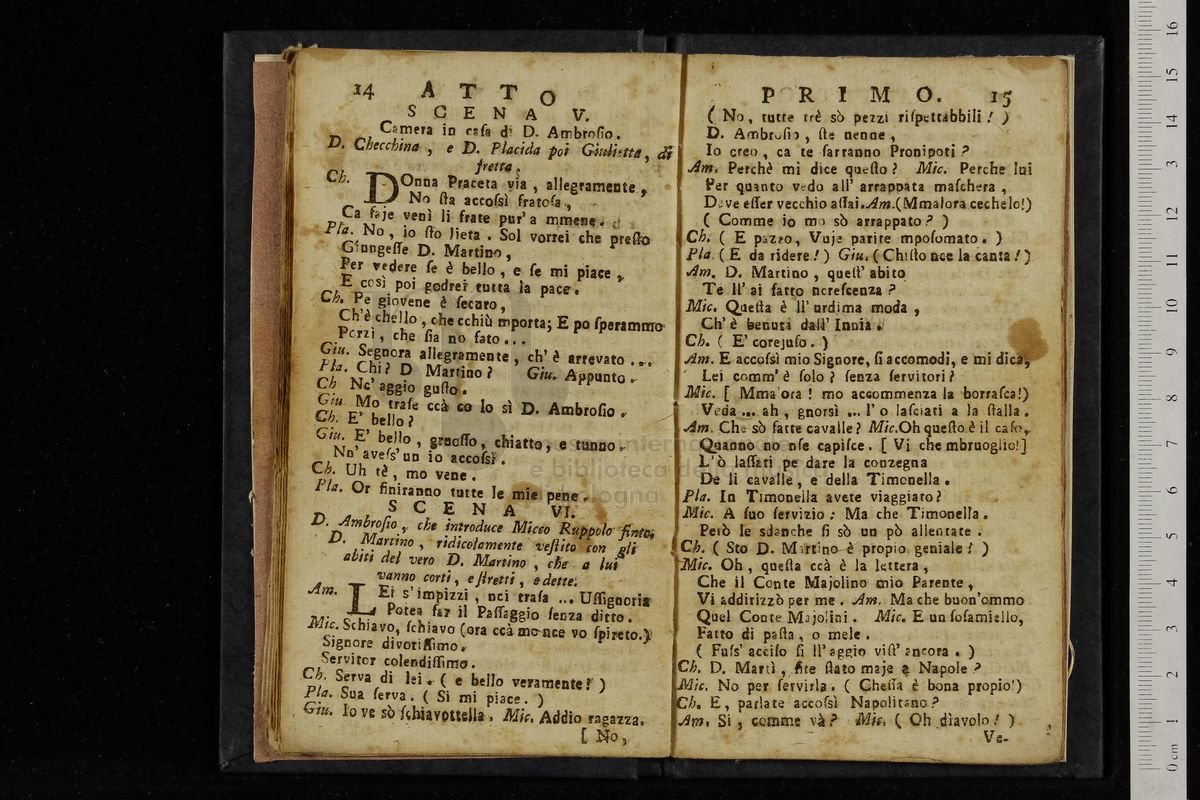 14 ATTO
SCENA V.
Camera in casa di D. Ambrosio.
D. Checchina, e D. Placida poi Giulietta, di
fretta.
Ch. DOnna Praceta via, allegramente,
No sta accossì fratosa,
Ca saje venì li frate pur' a mmene.
Pla. No, io sto lieta. Sol vorrei che presto
Giungesse D. Martino,
Per vedere se è bello, e se mi piace,
E così poi godrei tutta la pace.
Ch. Pe giovene è securo,
Ch'è chello, che cchiù mporta; E po sperammo
Perzì, che sia no fato...
Giu. Segnora allegramente, ch' è arrevato ....
Pla. Chi? D Martino? Giu. Appunto.
Ch Nc' aggio gusto.
Giu Mo trase ccà co lo sì D. Ambrosio.
Ch. E' bello?
Giu. E' bello, gruosso, chiatto, e tunno.
Nn' avess' un io accossì.
Ch. Uh tè, mo vene.
Pla. Or finiranno tutte le mie pene.
SCENA VI.
D. Ambrosio, che introduce Micco Ruppolo finto
D. Martino, ridicolamente vestito con gli
abiti del vero D. Martino, che a lui
vanno corti, e stretti, e dette.
Am. LEi s' impizzi, nci trasa ... Ussignoria
Potea far il Passaggio senza ditto.
Mic. Schiavo, schiavo (ora ccà mo nce vo spireto.)
Signore divotissimo.
Servitor colendissimo.
Ch. Serva di lei. ( e bello veramente! )
Pla. Sua serva. ( Si mi piace. )
Giu. Io ve sò schiavottella. Mic. Addio ragazza.
[ No,
PRIMO. 15
( No, tutte trè sò pezzi rispettabbili! )
D. Ambrosio, ste nenne,
Io creo, ca te sarranno Pronipoti?
Am. Perchè mi dice questo? Mic. Perche lui
Per quanto vedo all' arrappata maschera,
Deve esser vecchio assai. Am. (Mmalora cechelo!)
( Comme io mo sò arrappato? )
Ch. ( E pazzo, Vuje parite mposomato. )
Pla. ( E da ridere! ) Giu. ( Chisto nce la canta! )
Am. D. Martino, quest' abito
Te ll' ai fatto ncrescenza?
Mic. Questa è ll' urdima moda,
Ch' è benuta dall' Innia.
Ch. ( E' corejuso. )
Am. E accossì mio Signore, si accomodi, e mi dica,
Lei comm' è solo? senza servitori?
Mic. [ Mma'ora! mo accommenza la borrasca!)
Veda ... ah, gnorsì ... l' o lasciati a la stalla.
Am. Che sò fatte cavalle? Mic. Oh questo è il caso,
Quanno no nse capisce. [ Vi che mbruoglio!]
L' ò lassati pe dare la conzegna
De li cavalle, e della Timonella.
Pla. In Timonella avete viaggiato?
Mic. A suo servizio: Ma che Timonella.
Però le sdanche si sò un pò allentate.
Ch. ( Sto D. Martino è propio geniale! )
Mic. Oh, questa ccà è la lettera,
Che il Conte Majolino mio Parente,
Vi addirizzò per me. Am. Ma che buon' ommo
Quel Conte Majolini. Mic. E un sosamiello,
Fatto di pasta, o mele.
( Fuss' acciso si ll' aggio vist' ancora. )
Ch. D. Martì, site stato maje a Napole?
Mic. No per servirla. ( Chessa è bona propio!)
Ch. E, parlate accossì Napolitano?
Am. Si, comme và? Mic. ( Oh diavolo! )
Ve-
museo internazionale
e biblioteca della musica
di bologna
0 cm 1 2 3 4 5 6 7 8 9 10 11 12 13 14 15 16